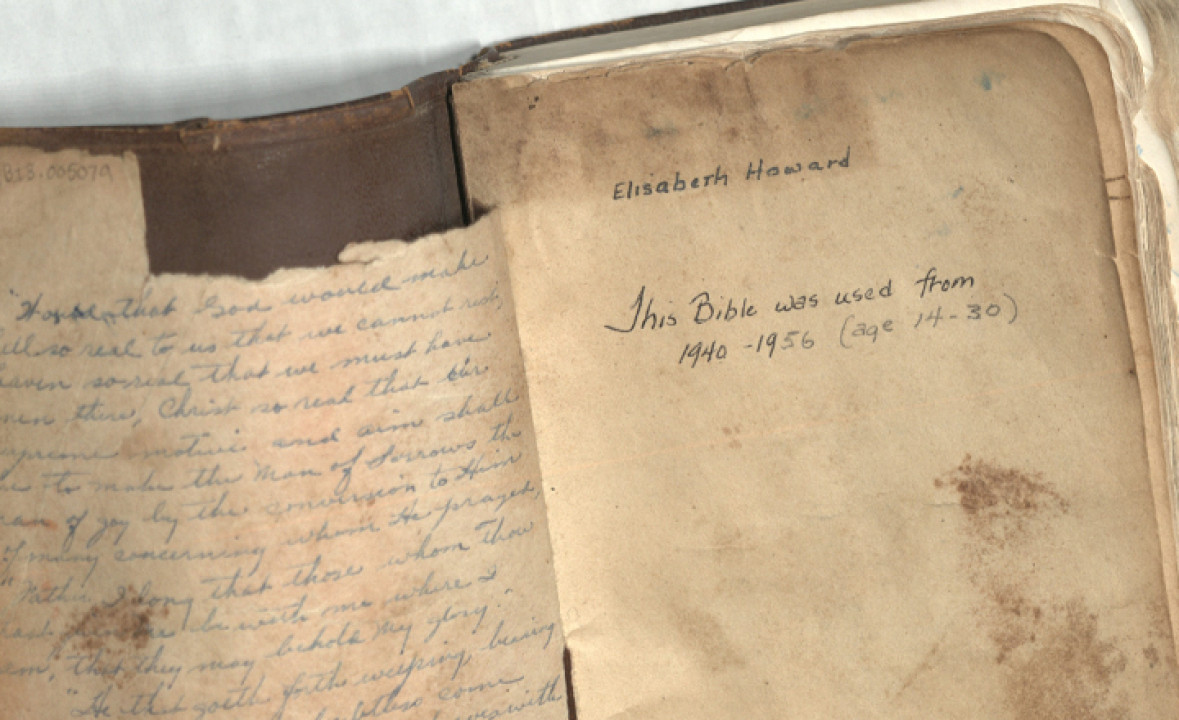 BIB.005079
that God would make
so real to us that we cannot rest,
so real that we must have
men there, Christ so real that our
supreme motive and aim shall
be to make the Man of Sorrows the
man of joy by the conversion to Him
of many concerning whom He prayed,
"Father I long that those whom Thou
be with me where I
am, that they may behold My glory."
"He that goeth forth weeping bearing
doubtless come
with
Elisabeth Howard
This Bible was used from
1940 - 1956 (age 14 - 30)